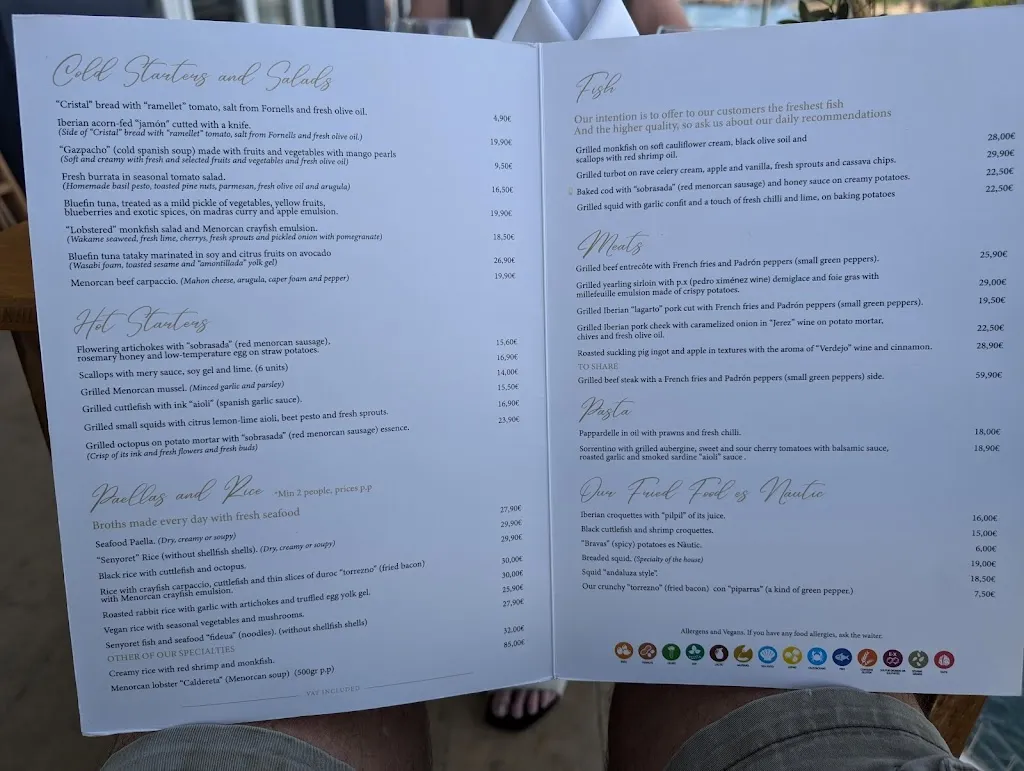 Cold Starters and Salads
"Cristal" bread with "ramellet" tomato, salt from Fornells and fresh olive oil. 4,90€
Iberian acorn-fed "jamón" cutted with a knife. 19,90€
(Side of "Cristal" bread with "ramellet" tomato, salt from Fornells and fresh olive oil.)
"Gazpacho" (cold spanish soup) made with fruits and vegetables with mango pearls 9,50€
(Soft and creamy with fresh and selected fruits and vegetables and fresh olive oil)
Fresh burrata in seasonal tomato salad. 16,50€
(Homemade basil pesto, toasted pine nuts, parmesan, fresh olive oil and arugula)
Bluefin tuna, treated as a mild pickle of vegetables, yellow fruits,
blueberries and exotic spices, on madras curry and apple emulsion. 19,90€
"Lobstered" monkfish salad and Menorcan crayfish emulsion. 18,50€
(Wakame seaweed, fresh lime, cherrys, fresh sprouts and pickled onion with pomegranate)
Bluefin tuna tataky marinated in soy and citrus fruits on avocado 26,90€
(Wasabi foam, toasted sesame and "amontillada" yolk gel)
Menorcan beef carpaccio. (Mahon cheese, arugula, caper foam and pepper) 19,90€
Hot Starters
Flowering artichokes with "sobrasada" (red menorcan sausage),
rosemary honey and low-temperature egg on straw potatoes. 15,60€
Scallops with mery sauce, soy gel and lime. (6 units) 16,90€
Grilled Menorcan mussel. (Minced garlic and parsley) 14,00€
Grilled cuttlefish with ink "aioli" (spanish garlic sauce). 15,50€
Grilled small squids with citrus lemon-lime aioli, beet pesto and fresh sprouts. 16,90€
Grilled octopus on potato mortar with "sobrasada" (red menorcan sausage) essence. 23,90€
(Crisp of its ink and fresh flowers and fresh buds)
Paellas and Rice *Min 2 people, prices p.p
Broths made every day with fresh seafood
Seafood Paella. (Dry, creamy or soupy) 27,90€
"Senyoret" Rice (without shellfish shells). (Dry, creamy or soupy) 29,90€
Black rice with cuttlefish and octopus. 29,90€
Rice with crayfish carpaccio, cuttlefish and thin slices of duroc "torrezno" (fried bacon)
with Menorcan crayfish emulsion. 30,00€
Roasted rabbit rice with garlic with artichokes and truffled egg yolk gel. 30,00€
Vegan rice with seasonal vegetables and mushrooms. 25,90€
Senyoret fish and seafood "fideua" (noodles). (without shellfish shells) 27,90€
OTHER OF OUR SPECIALTIES
Creamy rice with red shrimp and monkfish. 32,00€
Menorcan lobster "Caldereta" (Menorcan soup) (500gr p.p) 85,00€
VAT INCLUDED
Fish
Our intention is to offer to our customers the freshest fish
And the higher quality, so ask us about our daily recommendations
Grilled monkfish on soft cauliflower cream, black olive soil and
scallops with red shrimp oil. 28,00€
Grilled turbot on rave celery cream, apple and vanilla, fresh sprouts and cassava chips. 29,90€
Baked cod with "sobrasada" (red menorcan sausage) and honey sauce on creamy potatoes. 22,50€
Grilled squid with garlic confit and a touch of fresh chilli and lime, on baking potatoes 22,50€
Meats
Grilled beef entrecôte with French fries and Padrón peppers (small green peppers). 25,90€
Grilled yearling sirloin with p.x (pedro ximénez wine) demiglace and foie gras with
millefeuille emulsion made of crispy potatoes. 29,00€
Grilled Iberian "lagarto" pork cut with French fries and Padrón peppers (small green peppers). 19,50€
Grilled Iberian pork cheek with caramelized onion in "Jerez" wine on potato mortar,
chives and fresh olive oil. 22,50€
Roasted suckling pig ingot and apple in textures with the aroma of "Verdejo" wine and cinnamon. 28,90€
TO SHARE
Grilled beef steak with a French fries and Padrón peppers (small green peppers) side. 59,90€
Pasta
Pappardelle in oil with prawns and fresh chilli. 18,00€
Sorrentino with grilled aubergine, sweet and sour cherry tomatoes with balsamic sauce,
roasted garlic and smoked sardine "aioli" sauce . 18,90€
Our Fried Food es Nàutic
Iberian croquettes with "pilpil" of its juice. 16,00€
Black cuttlefish and shrimp croquettes. 15,00€
"Bravas" (spicy) potatoes es Nàutic. 6,00€
Breaded squid. (Specialty of the house) 19,00€
Squid "andaluza style". 18,50€
Our crunchy "torrezno" (fried bacon) con "piparras" (a kind of green pepper.) 7,50€
Allergens and Vegans. If you have any food allergies, ask the waiter.